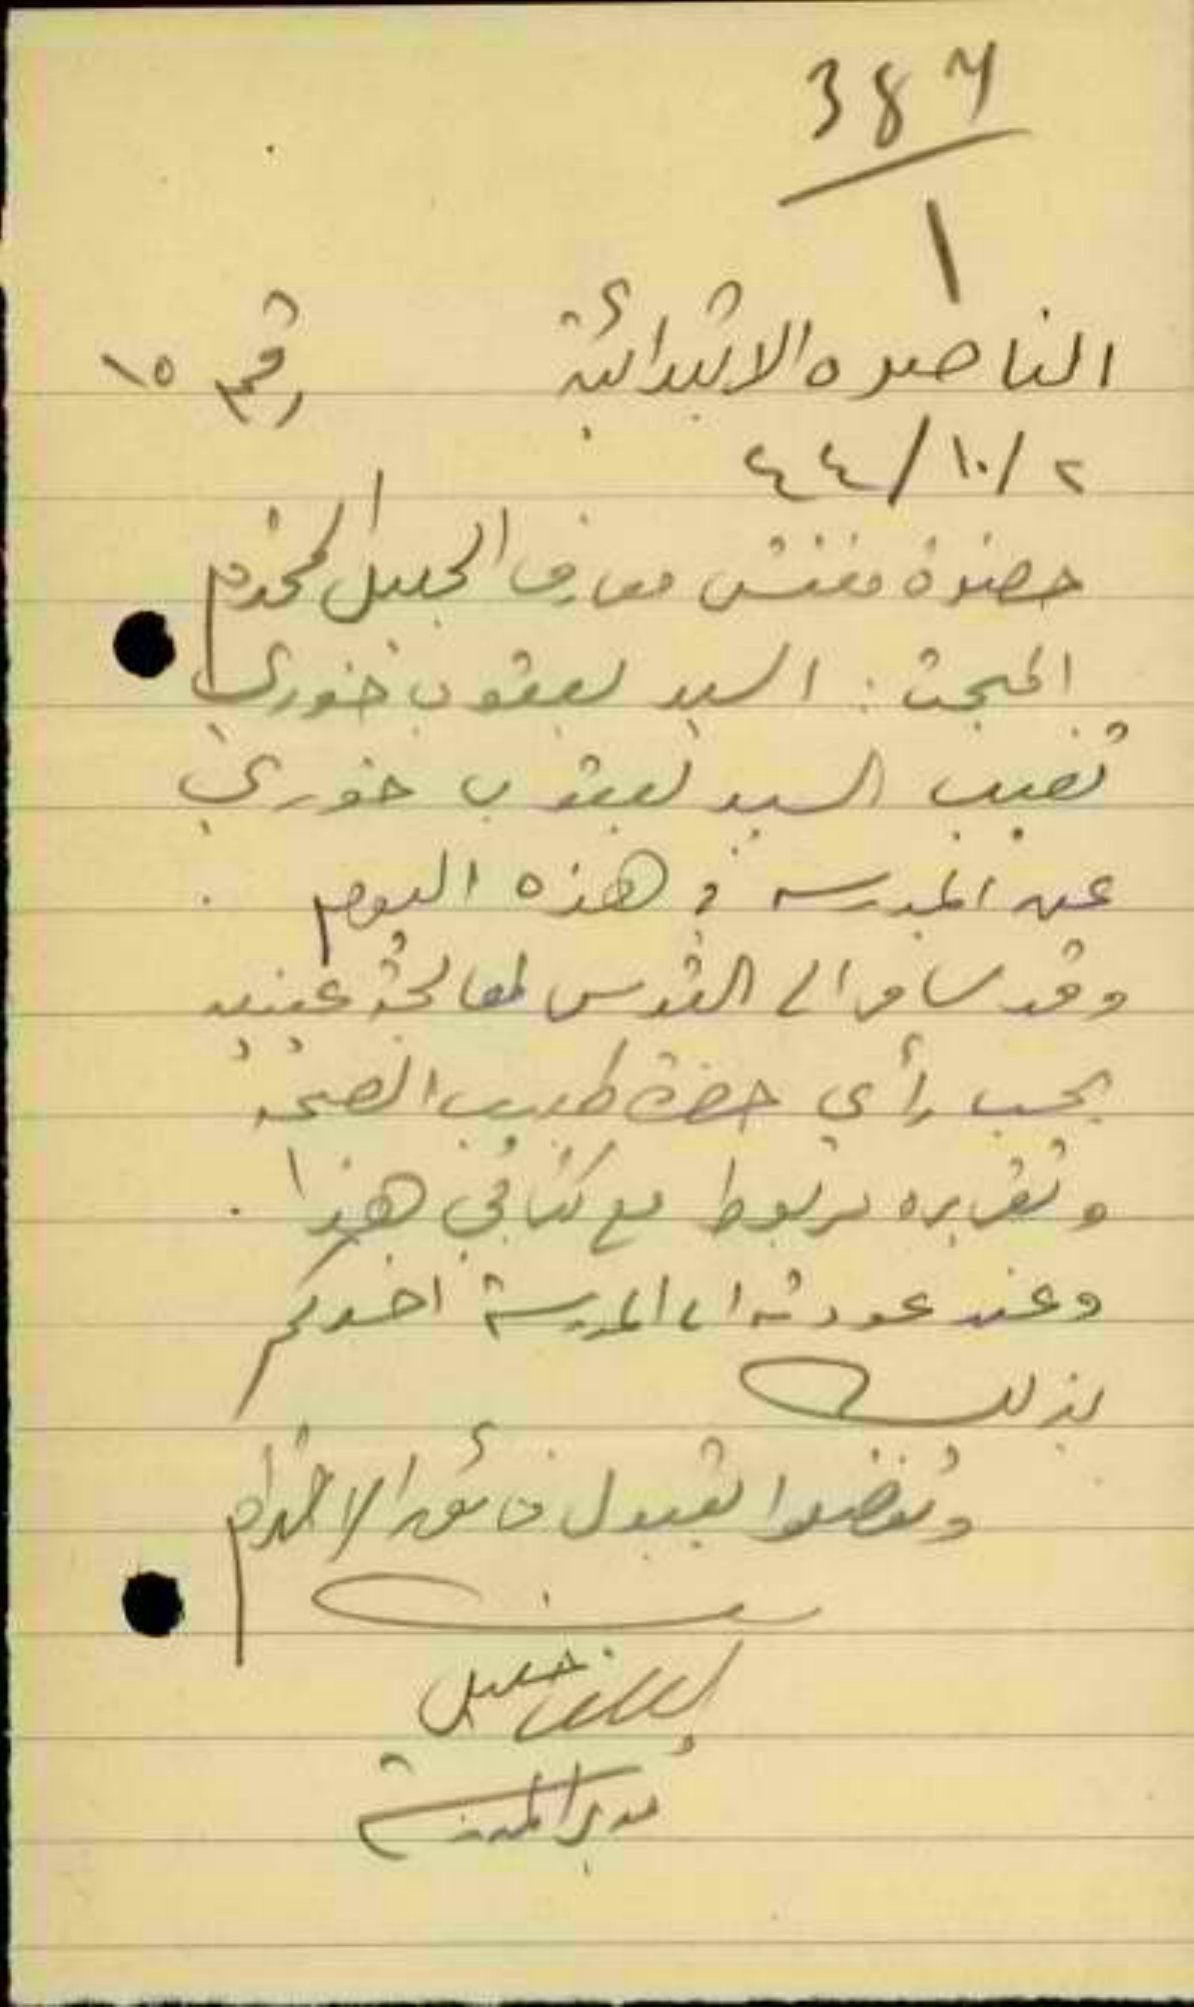 387
١
الناصره الابتدائية رقم ١٥
٢/١٠/٤٤
حضرة مفتش معارف الجليل المحترم
المبحث: السيد يعقوب خوري
تغيب السيد يعقوب خوري
عن المدرسه في هذه اليوم.
وقد سافر الى القدس لمعالجة عينيه
بحسب رأي حضرة طبيب الصحة
وتقريره مربوط مع كتابي هذا.
وعند عودته الى المدرسة اخبركم
بذلك
وتفضلوا بقبول فائق الاحترام
خليل
مدير المدرسة